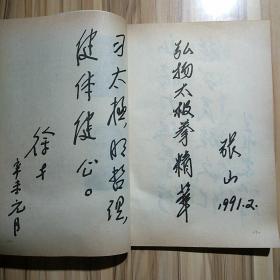 习太极明哲理
健体健心。
徐才
辛未元月
弘扬太极拳精华
张山
1991.2.